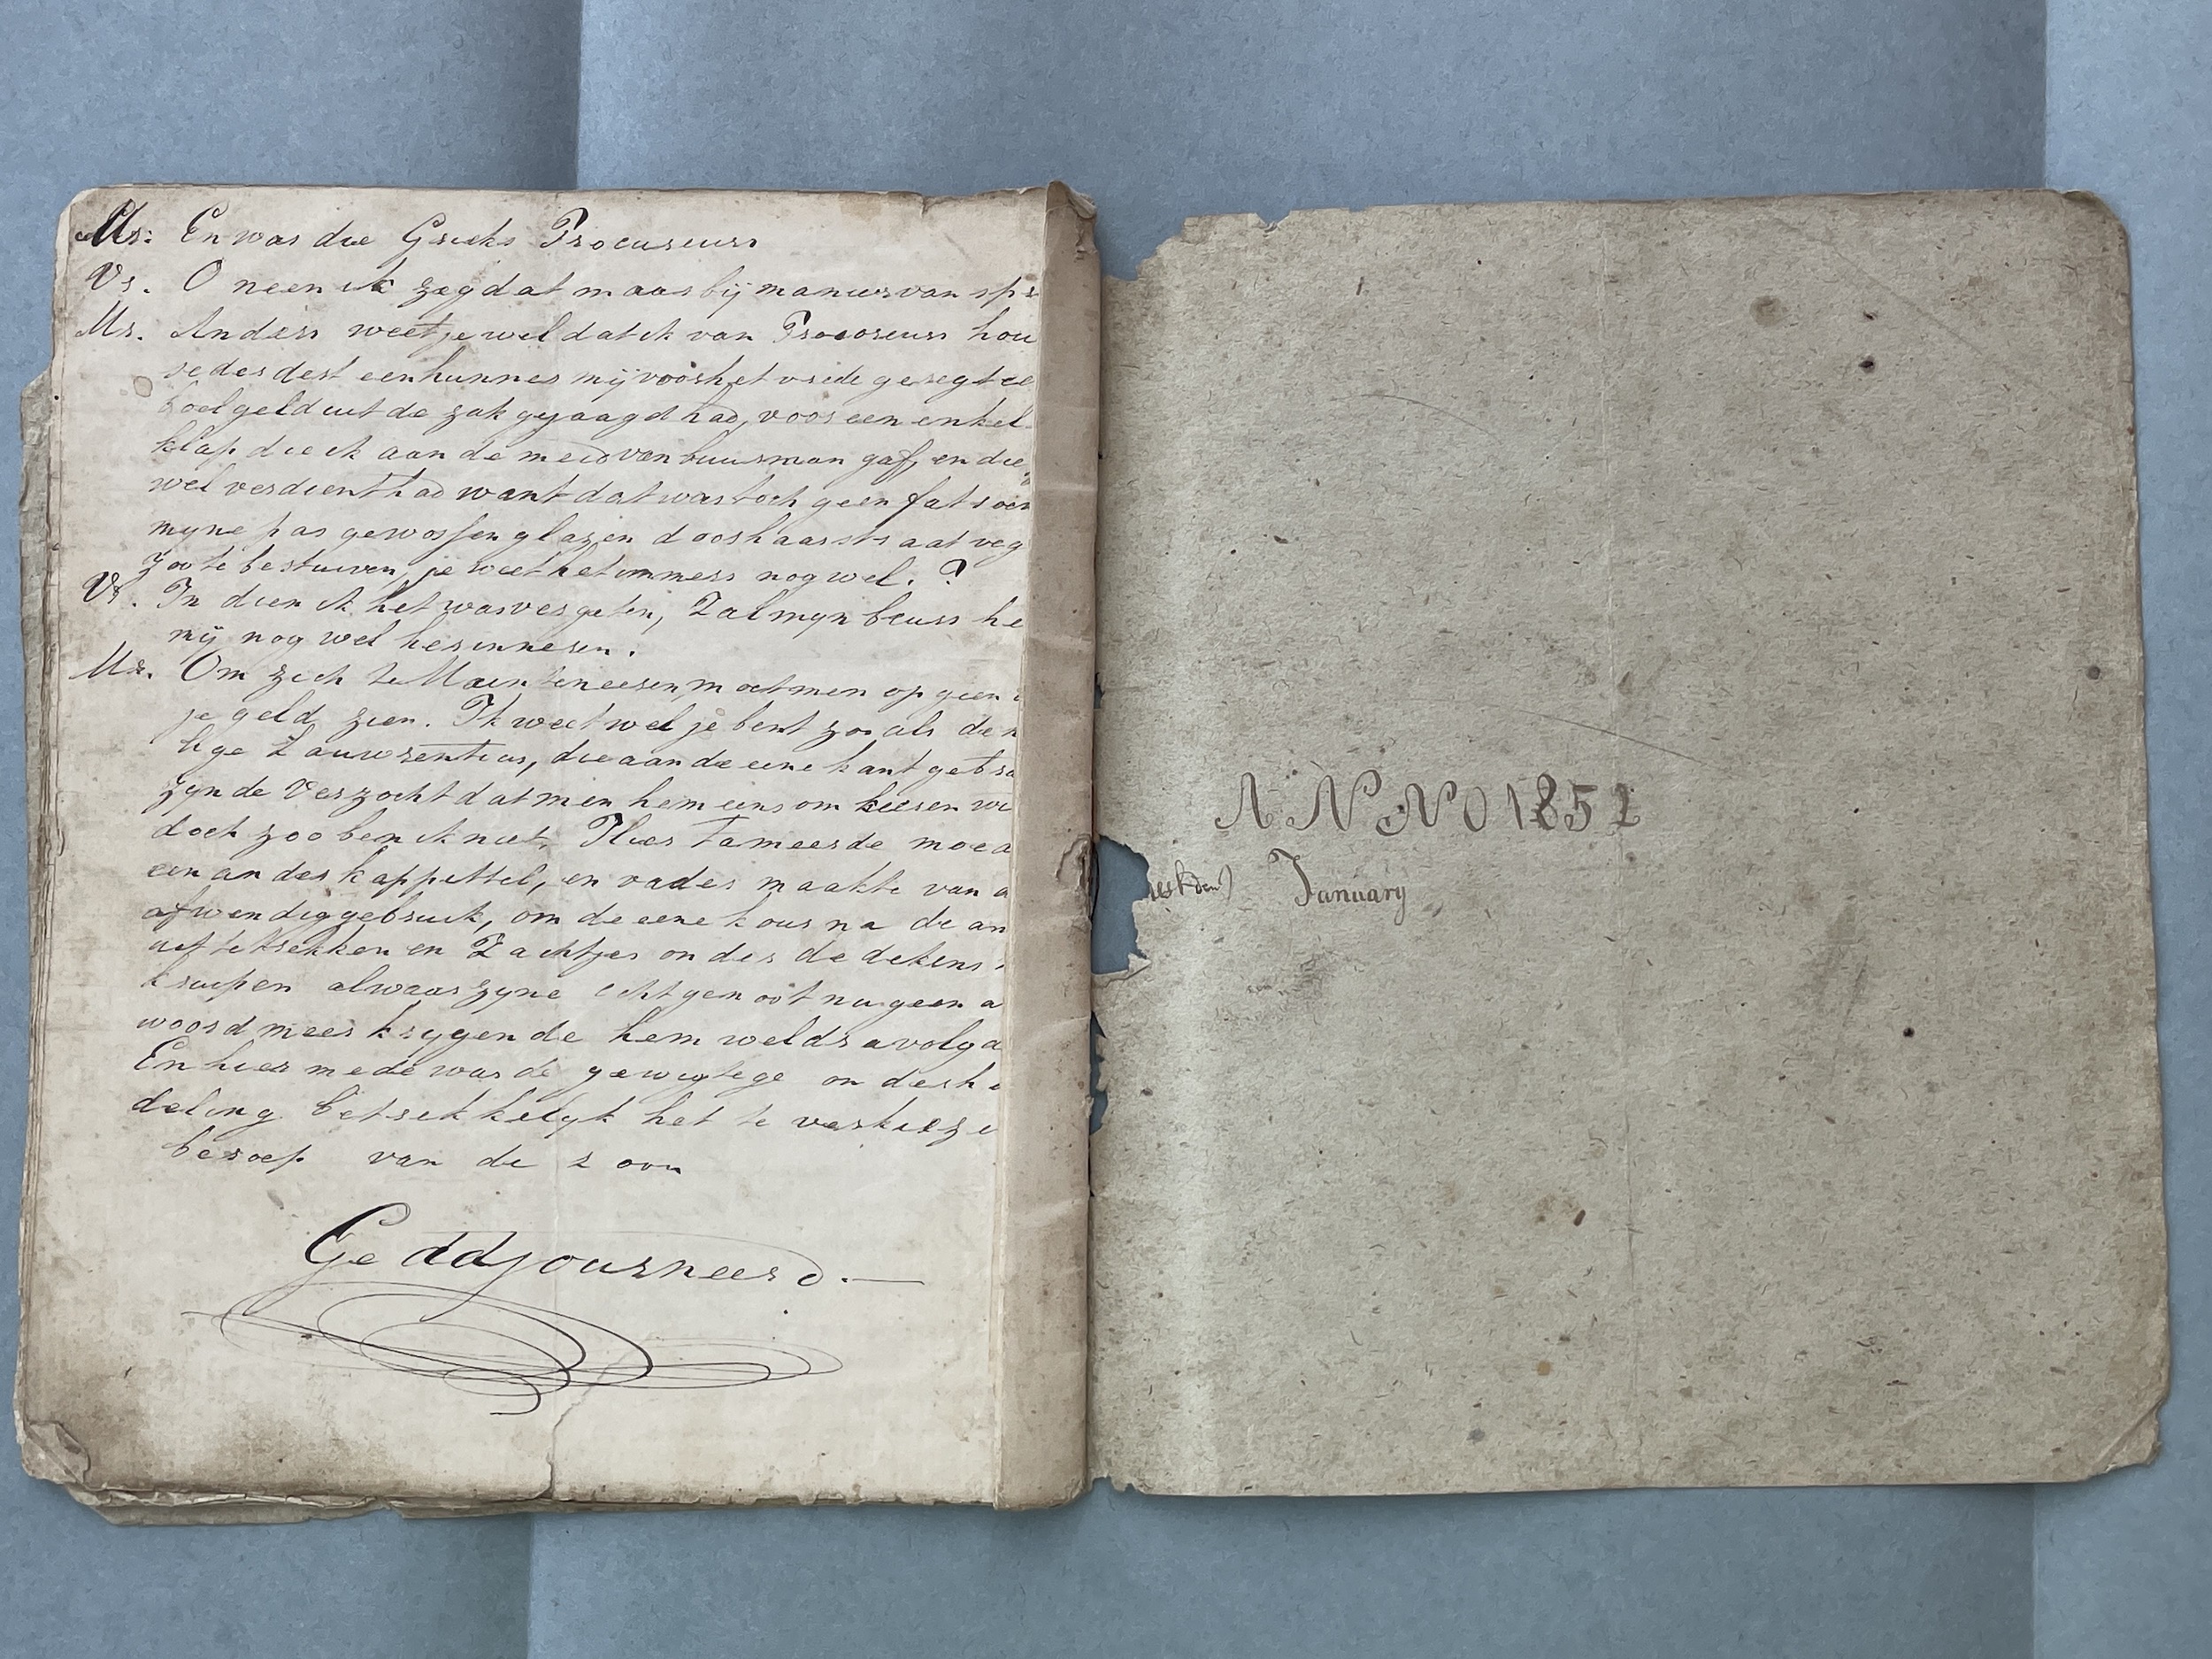 Mr: En was die Grieks Procureur
Vr. O neen ik zeg dat maar bij manier van spr
Mr. Anders weet je wel dat ik van Procoreurs hou
seder dest een hunner mij voor het vride geregt ee
boel geld uit de zak gejaagd had, voor een enkel
klap die ik aan de meid van buurman gaf, en die
wel verdient had want dat was toch geen fatsoen
myne pas gewossen glazen door haar straat veg
zoo te bestuiven, je weet het immers nog wel. ?
Vr. In dien ik het was vergeten, Zal myn beurs he
mij nog wel herinneren.
Mr. Om zich te Mainteneeren moet men op geen
je geld zien. Ik weet wel je bent zoo als de h
lige Lauwrentius, die aan de eene kant gebra
zynde Verzocht dat men hem eens om keeren wi
doch zoo ben ik niet. Hier tameerde moed
een ander kappittel, en vader maakte van d
afwendig gebruik, om de eene kous na de an
uit te trekken en Zachtjes onder de dekens
kruipen alwaar zyne echtgenoot nu geen a
woord meer krygende hem weldra volgd
En hier mede was de gewigtege onderha
deling betrekkelyk het te verkieze
beroep van de zoon
Geddjourneerd.—
ANNO 1852
January